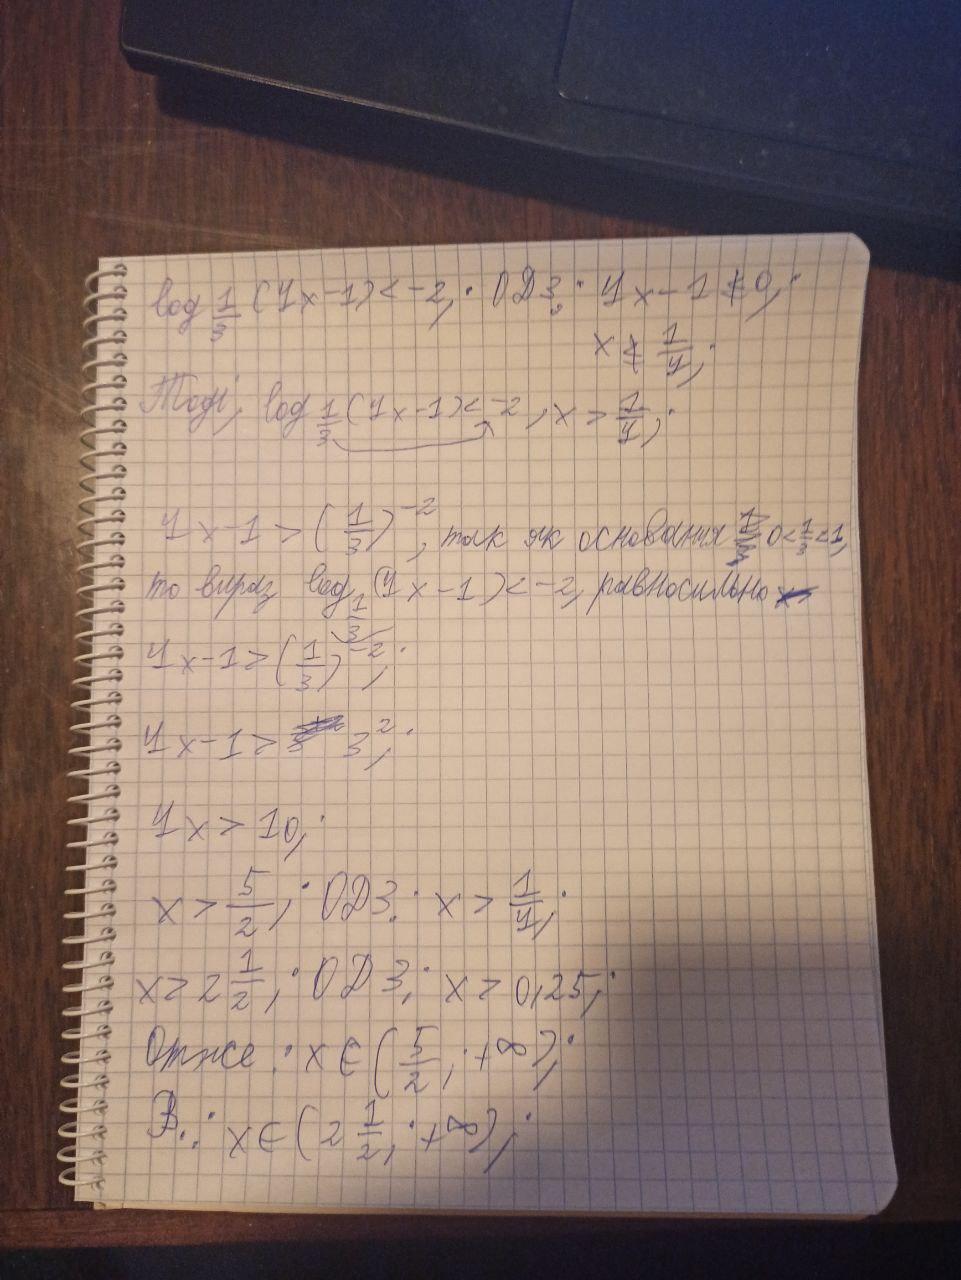 log 1/3 (4x-1) < -2; ОДЗ: 4x-1 ≠ 0;
x ≠ 1/4;
Тоді, log 1/3 (4x-1) < -2, x > 1/4;
4x-1 > (1/3)^-2, так як основания 0 < 1/3 < 1,
то вираз log 1/3 (4x-1) < -2, равносильно
4x-1 > (1/3)^-2;
4x-1 > 3^2;
4x > 10;
x > 5/2; ОДЗ: x > 1/4;
x > 2 1/2; ОДЗ: x > 0,25;
Отже: x ∈ (5/2; +∞);
В.: x ∈ (2 1/2; +∞);